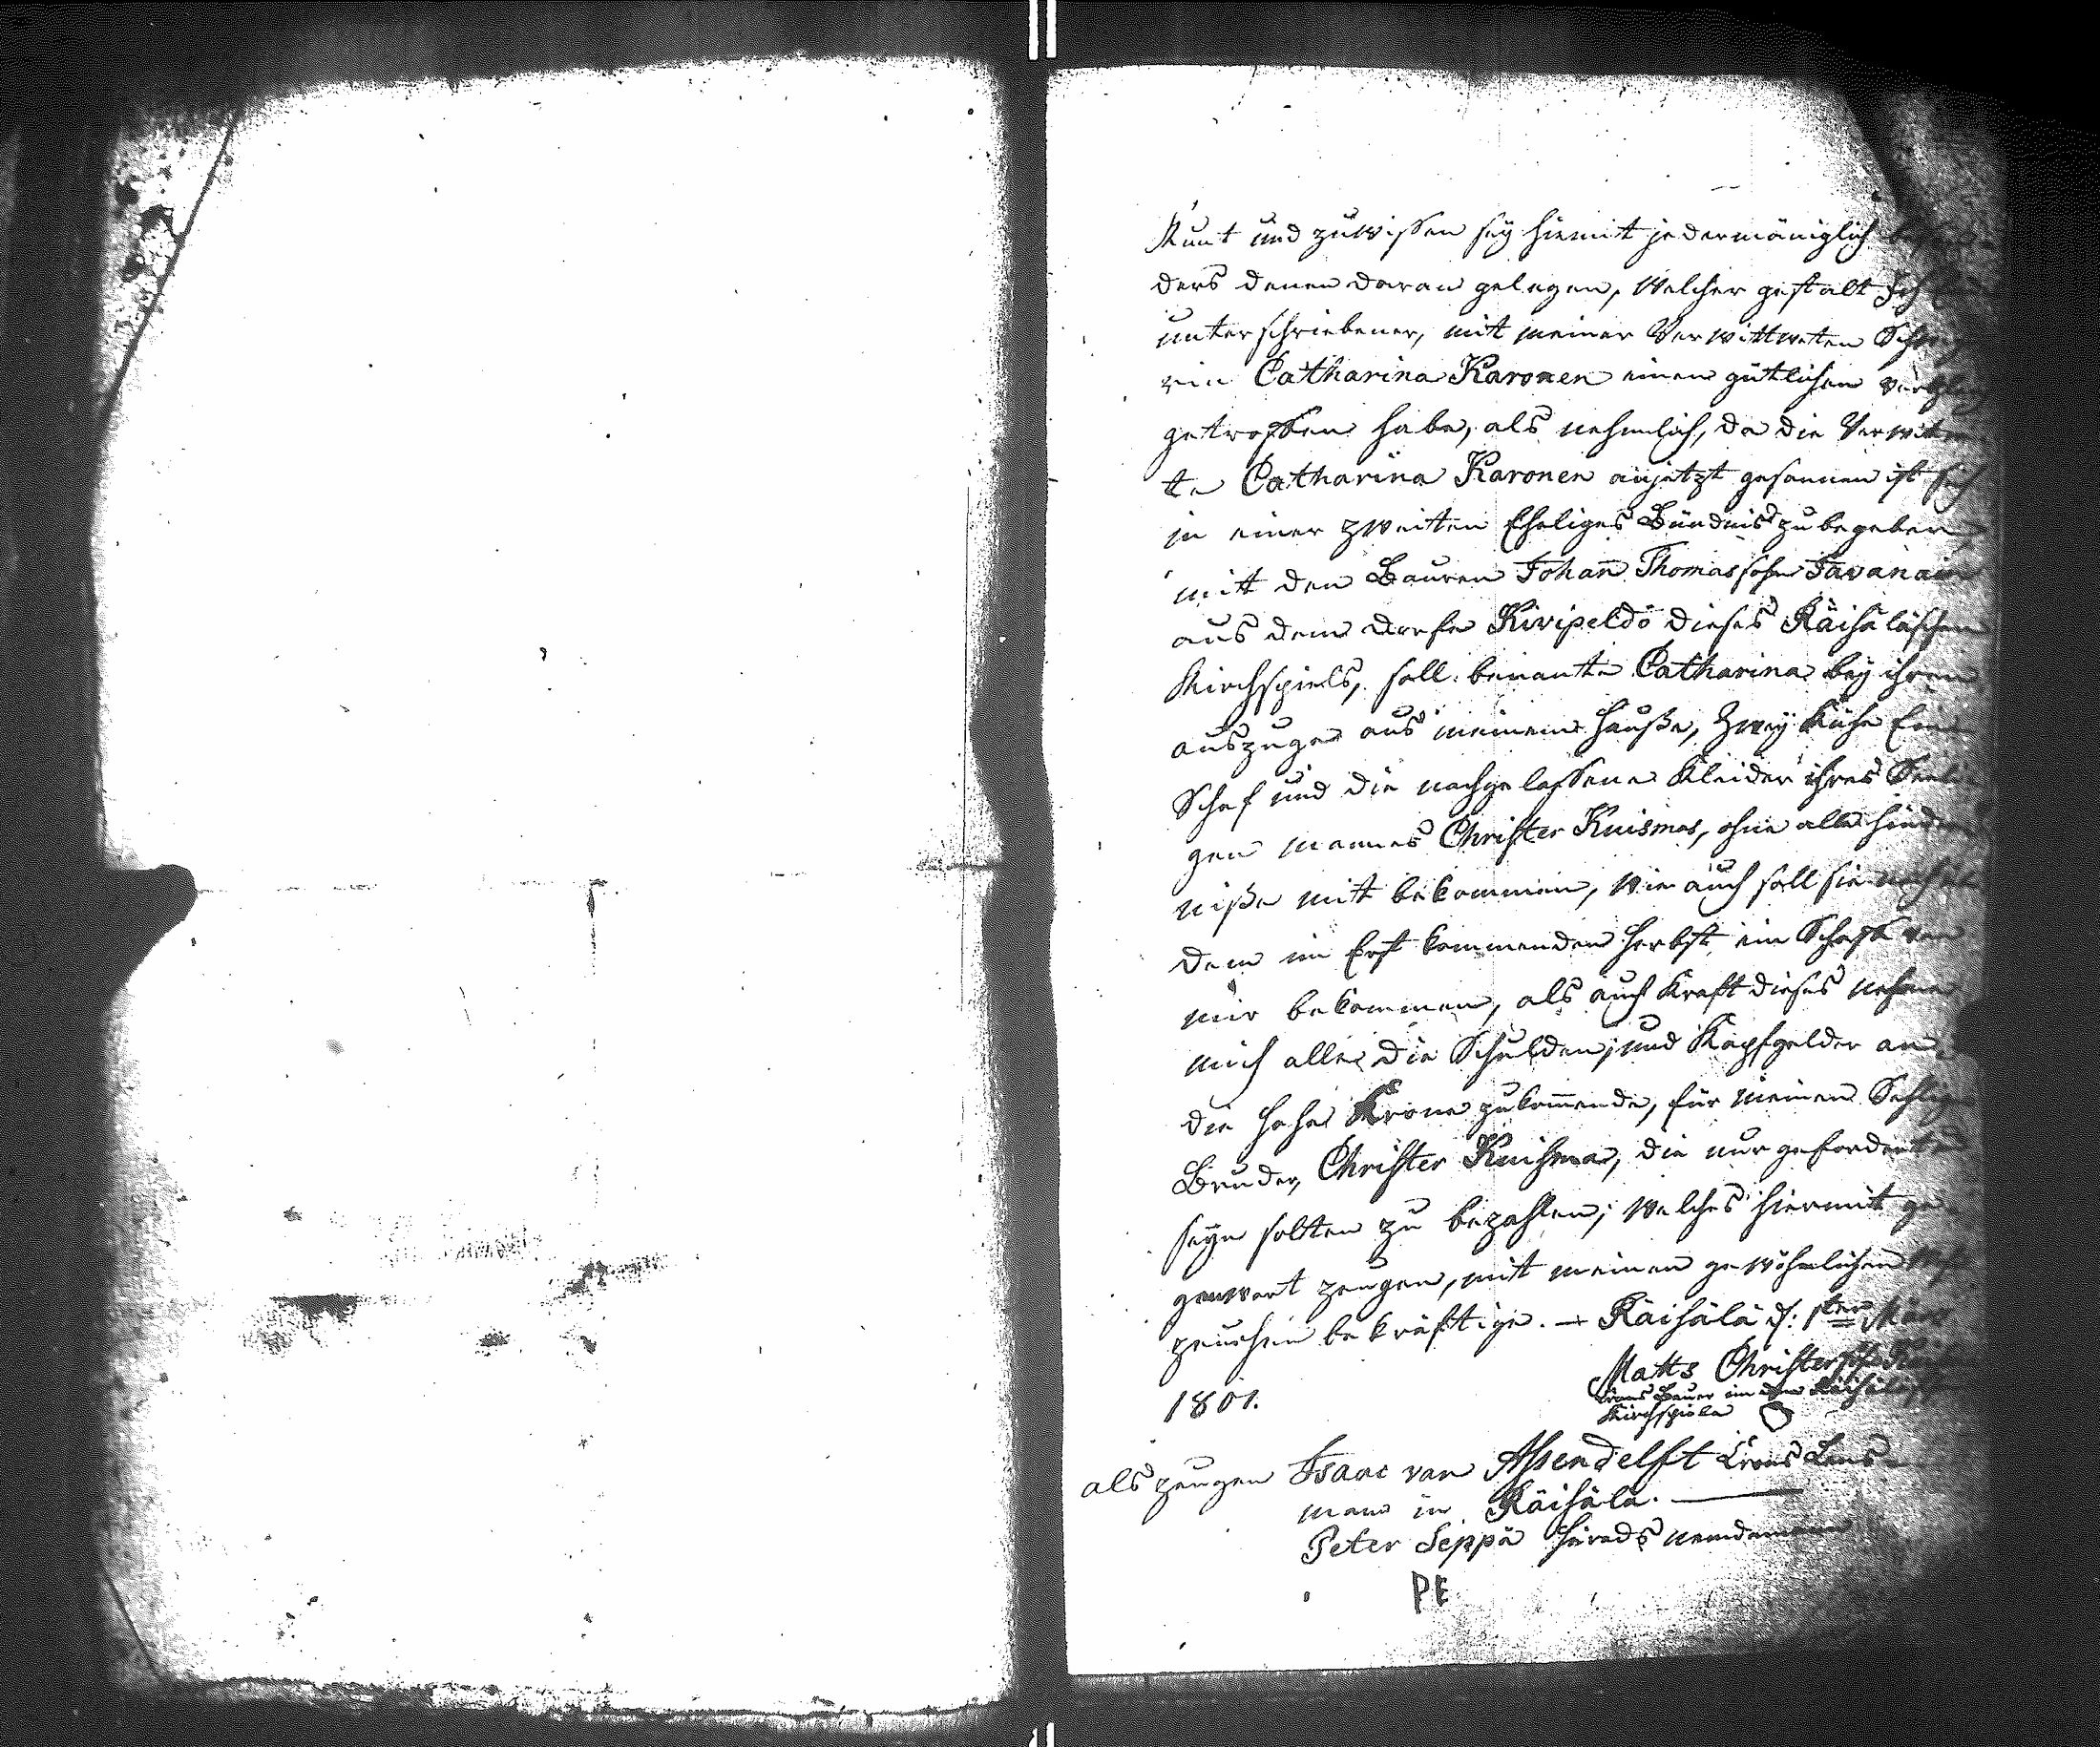 Kunt und zu wissen sey hiemit jedermäniglich
ders denen daran gelegen, Welcher gestalt Ich
unterschriebener, mit meiner Verwittweten
rin Catharina Karonen einen gütlichen
getroffen habe, als nehmlich, da die
te Catharina Karonen anjetzt gesonnen ist sich
in einer zweiten Eheliges Bündnis zu begeben
mitt den Bauren Johan̄ Thomas sohn Tavanain
aus dem dorfe Kivipeldo dieses Räisäläschen
Kirchspiels, soll benante Catharina bey ihren
auszuge aus meinem Hauße, Zwey Kühe Ein
Schaf und die nachgelassene Kleider ihres Seeli
gen mannes Christer Kuismas, ohne alle hinder
niße mit bekommen, Wie auch soll sie
dem im Erst kommenden Herbst, ein Schaff von
mir bekommen, als auch Kraft dieses nehme
mich alle die Schulden, und Kopfgelder an
die hohe Krone zukom̄ende, für meinen Sehligen
Bruder, Christer Kuisma, die nur gefordert
seyn solten zu bezahlen; Welches hiermit ge
genwart zeugen, mit meinen gewöhnlichen
zeuchen bekräftige. — Räisälä d: 1ten März
1801.
Matts Christersohn
Crons Bauer im dem Räisäläschen
Kirchspiele
als zeugen Isaac van Assendelft Crons Lens
man in Räisälä. —
Peter Seppä Härads nemdeman
PE